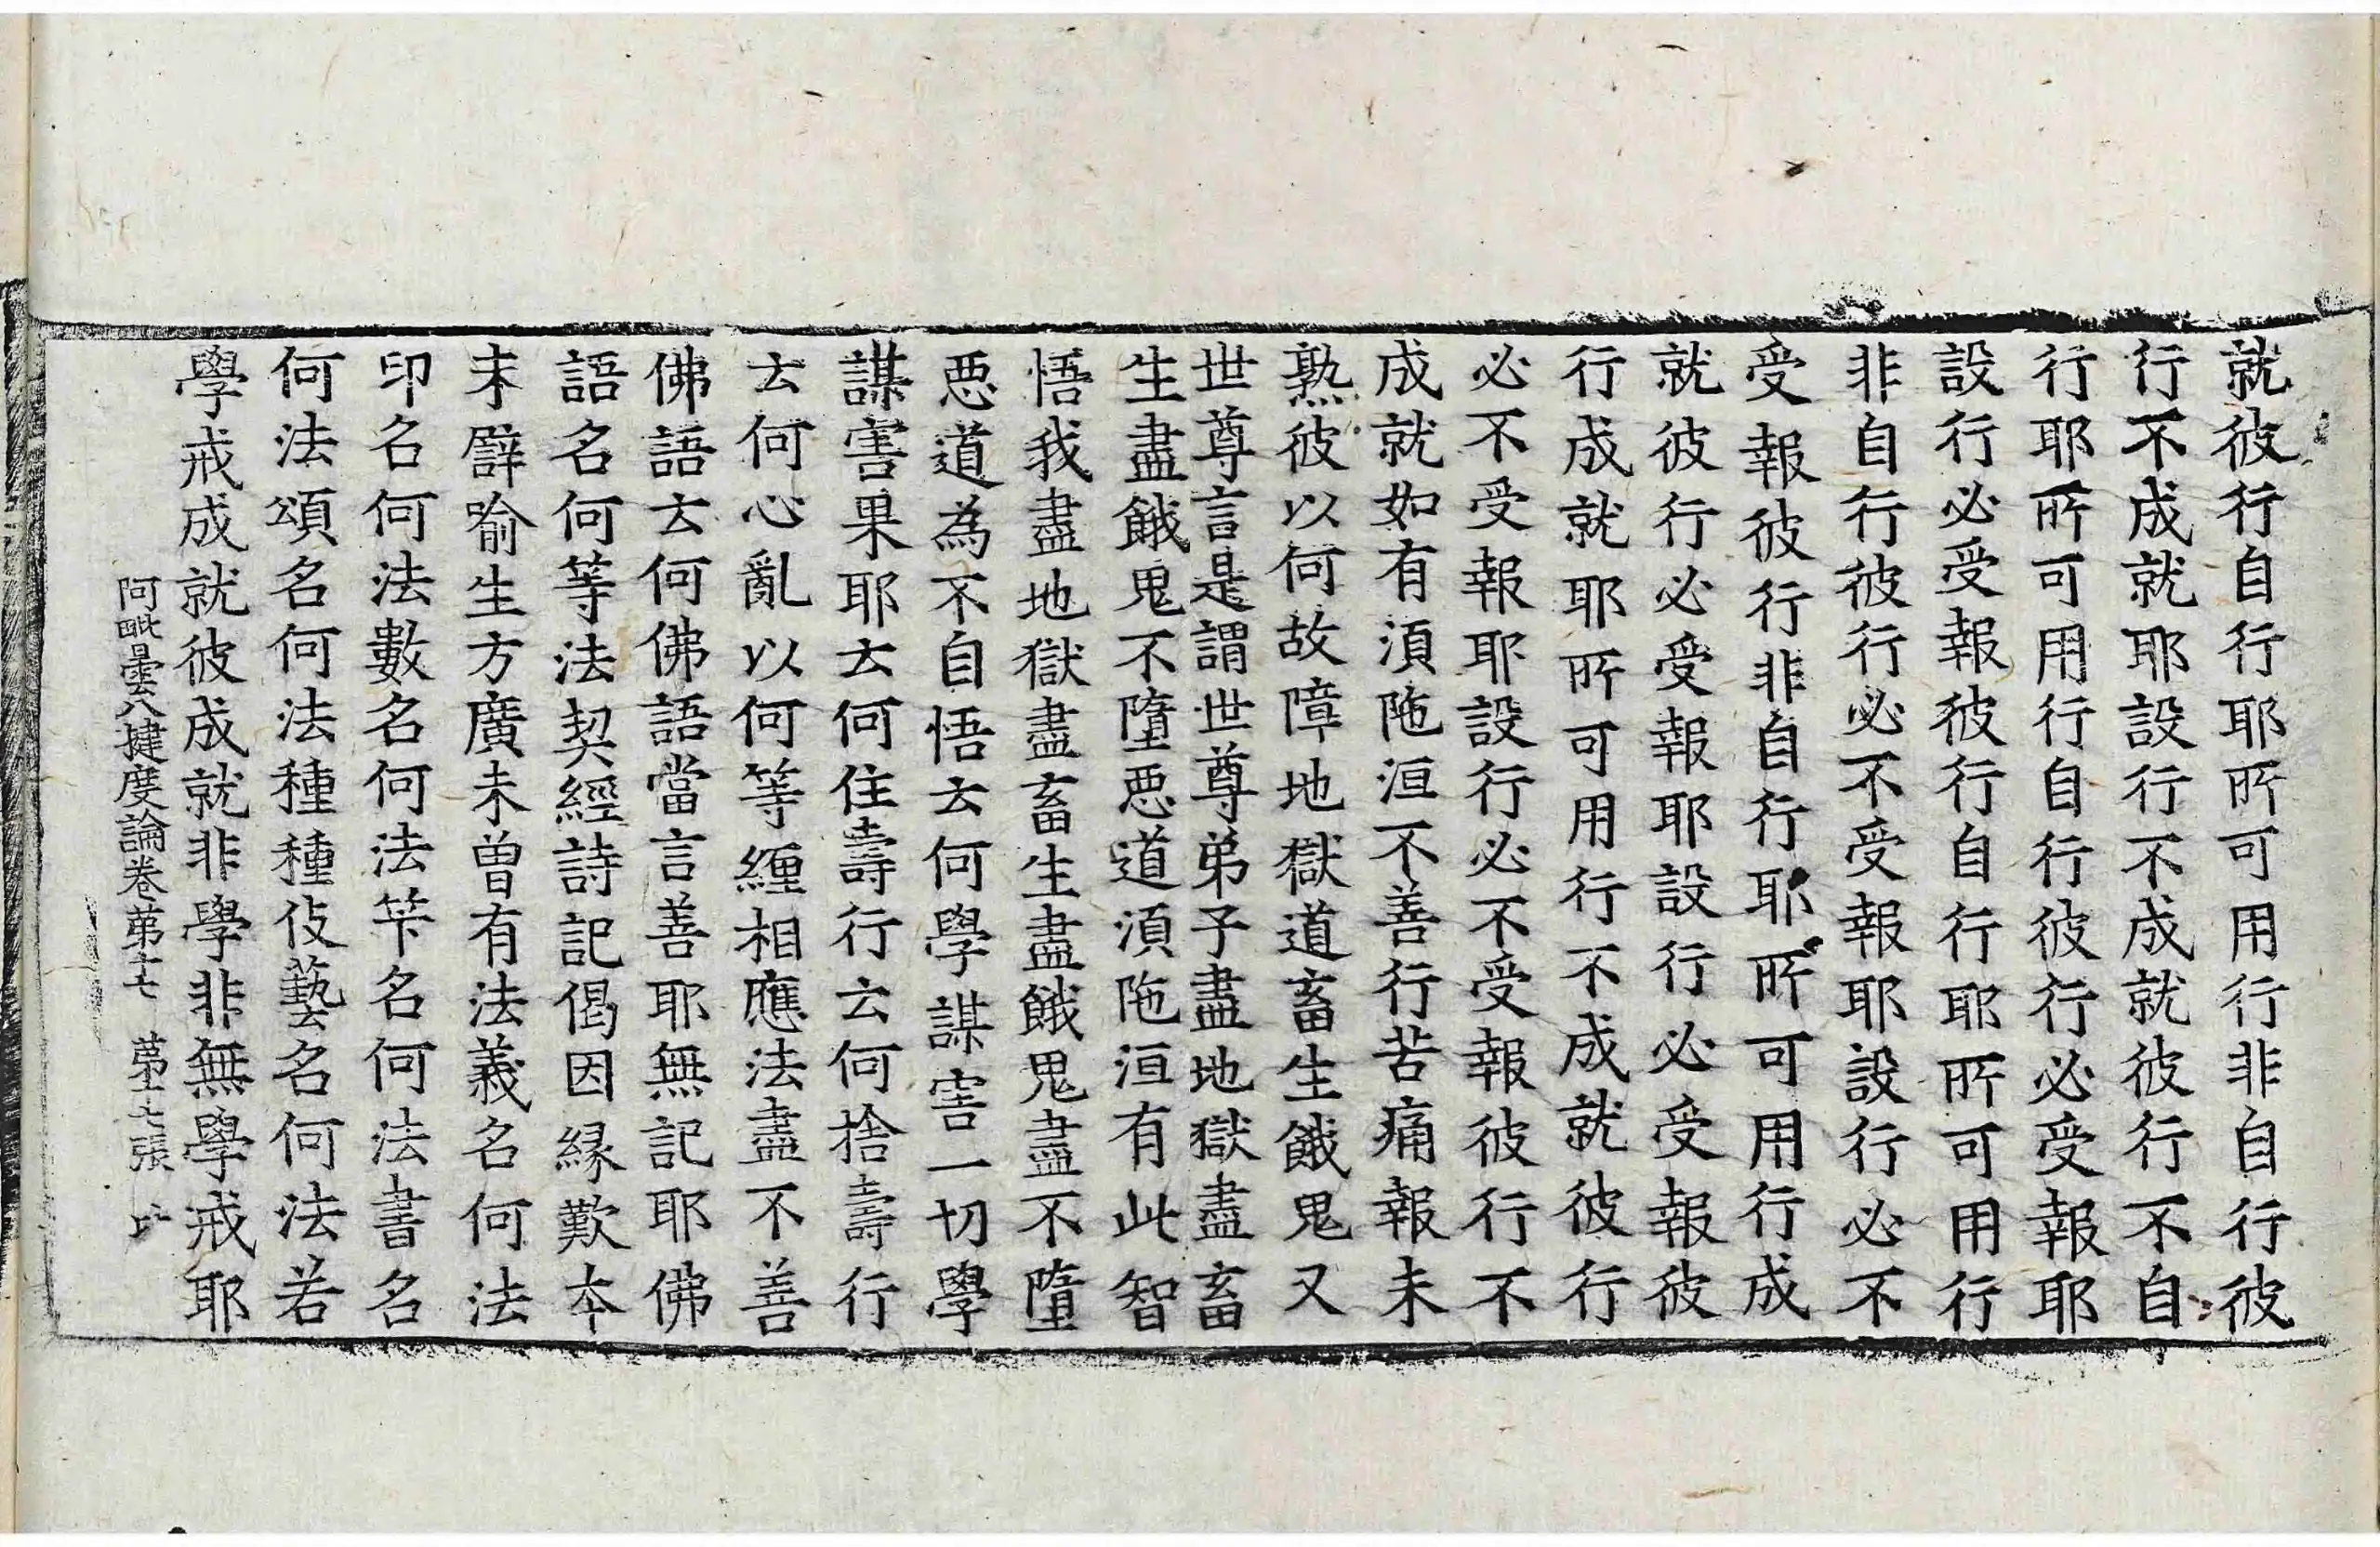 就彼行自行耶所可用行非自行彼
行不成就耶設行不成就彼行不自
行耶所可用行自行彼行必受報耶
設行必受報彼行自行耶所可用行
非自行彼行必不受報耶設行必不
受報彼行非自行耶所可用行成
就彼行必受報耶設行必受報彼
行成就耶所可用行不成就彼行
必不受報耶設行必不受報彼行不
成就如有須陁洹不善行苦痛報未
熟彼以何故障地獄道畜生餓鬼又
世尊言是謂世尊弟子盡地獄盡畜
生盡餓鬼不墮惡道須陁洹有此智
悟我盡地獄盡畜生盡餓鬼盡不墮
惡道為不自悟云何學謀害一切學
謀害果耶云何住壽行云何捨壽行
云何心亂以何等纏相應法盡不善
佛語云何佛語當言善耶無記耶佛
語名何等法契經詩記偈因緣歎本
末譬喻生方廣未曾有法義名何法
印名何法數名何法笇名何法書名
何法頌名何法種種伎藝名何法若
學戒成就彼成就非學非無學戒耶
阿毗曇八揵度論卷第十七 第十七張